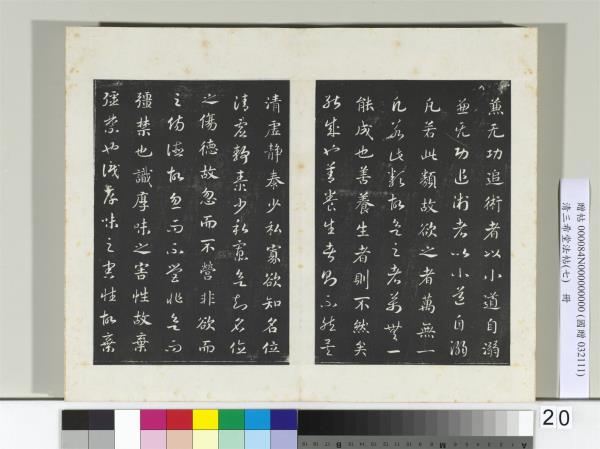 兼无功追術者以小道自溺
兼无功追術者以小道自溺
凡若此類故欲之者萬無一
凡若此類故欲之者萬無一
能成也善養生者則不然矣
能成也善養生者則不然矣
清虛靜泰少私寡欲知名位
清虛靜泰少私寡欲知名位
之傷德故忽而不營非欲而
之傷德故忽而不營非欲而
彊禁也識厚味之害性故棄
彊禁也識厚味之害性故棄
贈帖 000084N000000000 (國贈 032111)
清 三希堂法帖(七) 冊
20